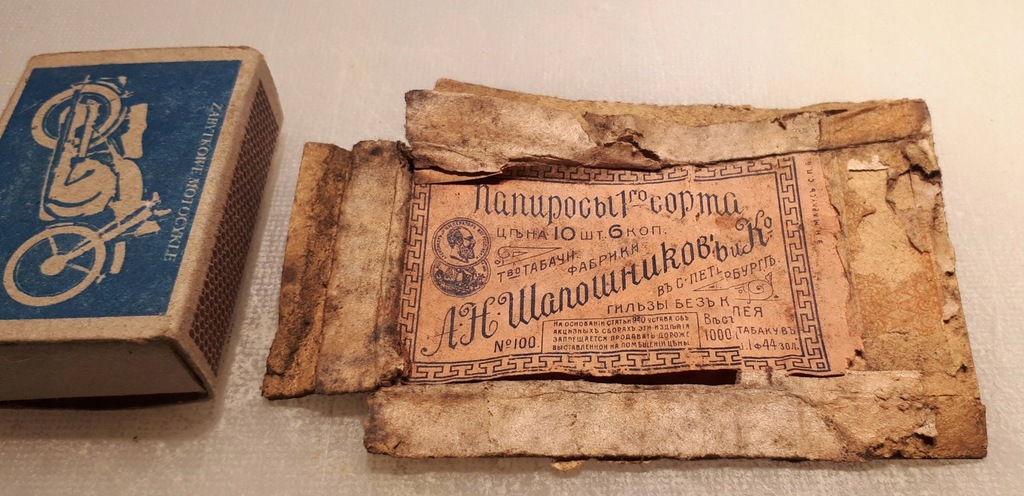 ZABYTKOWE MOTOCYKLE
Папиросы 1го сорта
ЦѢНА 10 ШТ. 6 КОП.
Тво ТАБАЧН. ФАБРИКИ
А.Н. Шапошниковъ и Ко
ВЪ С.-ПЕТЬ БУРГѢ.
ГИЛЬЗЫ БЕЗЪ К ЛЕЯ
№100
НА ОСНОВАНІИ СТАТЬИ 940 УСТАВА ОБЪ
АКЦИЗНЫХЪ СБОРАХЪ ЭТИ ИЗДѢЛІЯ
ЗАПРЕЩАЕТСЯ ПРОДАВАТЬ ДОРОЖЕ
ВЫСТАВЛЕННОЙ НА ПОМѢЩЕНІИ ЦѢНЫ.
ВѢСЪ
1000 ТАБАКУ ВЪ
1 Ф 44 ЗОЛ.